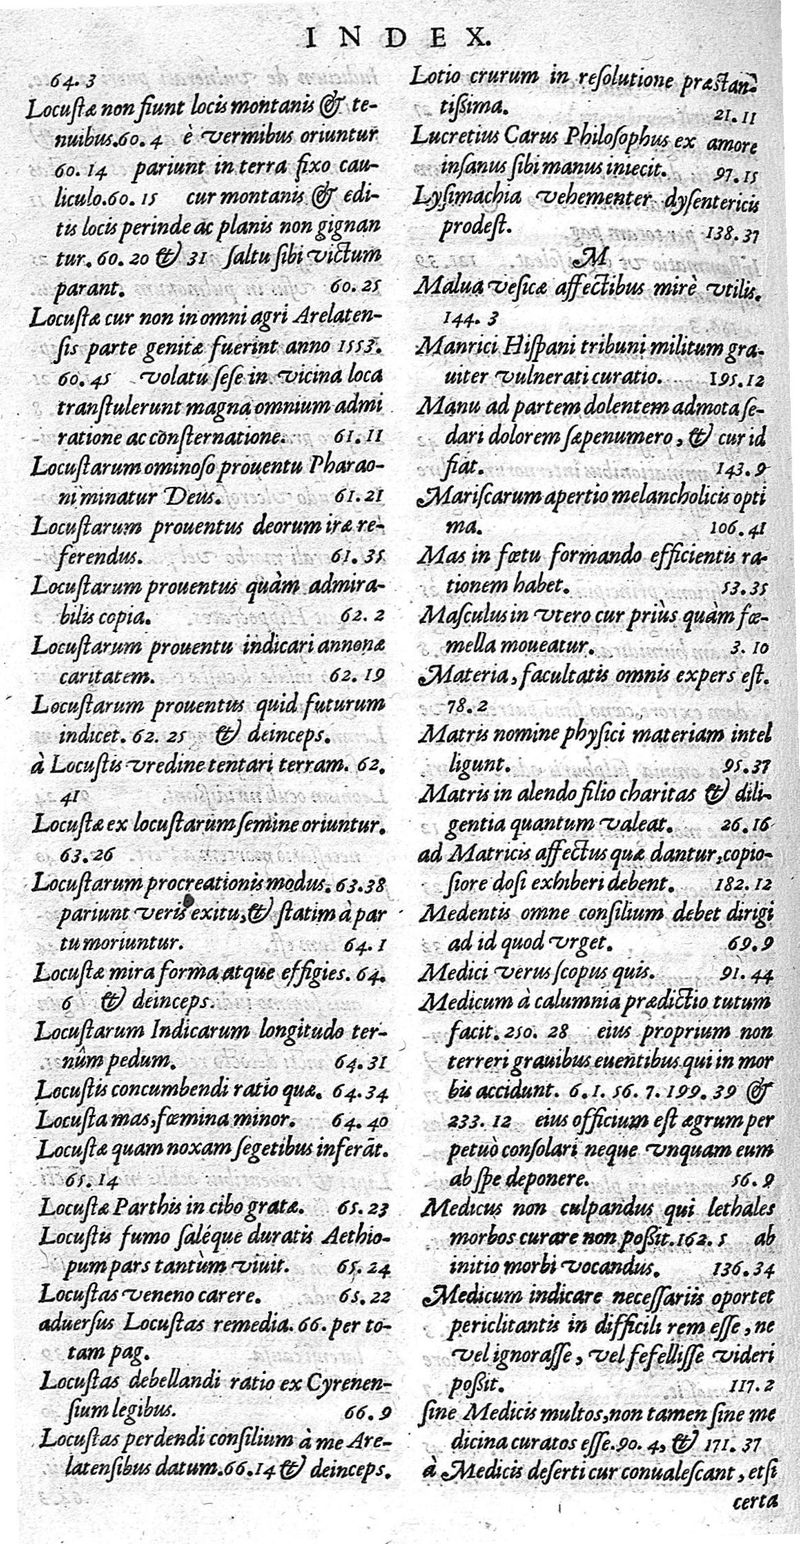 INDEX.
64.3
Locustæ non fiunt locis montanis & te-
nuibus.60.4 è vermibus oriuntur
60.14 pariunt in terra fixo cau-
liculo.60.15 cur montanis & edi-
tis locis perinde ac planis non gignan
tur. 60.20 & 31 saltu sibi victum
parant. 60.25
Locustæ cur non in omni agri Arelaten-
sis parte genitæ fuerint anno 1553.
60.45 volatu sese in vicina loca
transtulerunt magna omnium admi
ratione ac consternatione. 61.11
Locustarum ominoso prouentu Pharao-
ni minatur Deus. 61.21
Locustarum prouentus deorum iræ re-
ferendus. 61.35
Locustarum prouentus quàm admira-
bilis copia. 62.2
Locustarum prouentu indicari annonæ
caritatem. 62.19
Locustarum prouentus quid futurum
indicet. 62.25 & deinceps.
à Locustis vredine tentari terram. 62.
41
Locustæ ex locustarum semine oriuntur.
63.26
Locustarum procreationis modus. 63.38
pariunt veris exitu, & statim à par
tu moriuntur. 64.1
Locustæ mira forma atque effigies. 64.
6 & deinceps.
Locustarum Indicarum longitudo ter-
nûm pedum. 64.31
Locustis concumbendi ratio quæ. 64.34
Locusta mas, fœmina minor. 64.40
Locustæ quam noxam segetibus inferāt.
65.14
Locustæ Parthis in cibo gratæ. 65.23
Locustis fumo saléque duratis Aethio-
pum pars tantùm viuit. 65.24
Locustas veneno carere. 65.22
aduersus Locustas remedia. 66. per to-
tam pag.
Locustas debellandi ratio ex Cyrenen-
sium legibus. 66.9
Locustas perdendi consilium à me Are-
latensibus datum.66.14 & deinceps.
Lotio crurum in resolutione præstan-
tissima. 21.11
Lucretius Carus Philosophus ex amore
insanus sibi manus iniecit. 97.15
Lysimachia vehementer dysentericis
prodest. 138.37
M
Malua vesicæ affectibus mirè vtilis.
144.3
Manrici Hispani tribuni militum gra-
uiter vulnerati curatio. 195.12
Manu ad partem dolentem admota se-
dari dolorem sæpenumero, & cur id
fiat. 143.9
Mariscarum apertio melancholicis opti
ma. 106.41
Mas in fœtu formando efficientis ra-
tionem habet. 53.35
Masculus in vtero cur priùs quàm fœ-
mella moueatur. 3.10
Materia, facultatis omnis expers est.
78.2
Matris nomine physici materiam intel
ligunt. 95.37
Matris in alendo filio charitas & dili-
gentia quantum valeat. 26.16
ad Matricis affectus quæ dantur, copio-
siore dosi exhiberi debent. 182.12
Medentis omne consilium debet dirigi
ad id quod vrget. 69.9
Medici verus scopus quis. 91.44
Medicum à calumnia prædictio tutum
facit. 250.28 eius proprium non
terreri grauibus euentibus qui in mor
bis accidunt. 6.1. 56.7. 199.39 &
233.12 eius officium est ægrum per
petuò consolari neque vnquam eum
ab spe deponere. 56.9
Medicus non culpandus qui lethales
morbos curare non poßit.162.5 ab
initio morbi vocandus. 136.34
Medicum indicare necessariis oportet
periclitantis in difficili rem esse, ne
vel ignorasse, vel fefellisse videri
poßit. 117.2
sine Medicis multos, non tamen sine me
dicina curatos esse.90.4, & 171.37
à Medicis deserti cur conualescant, etsi
certa